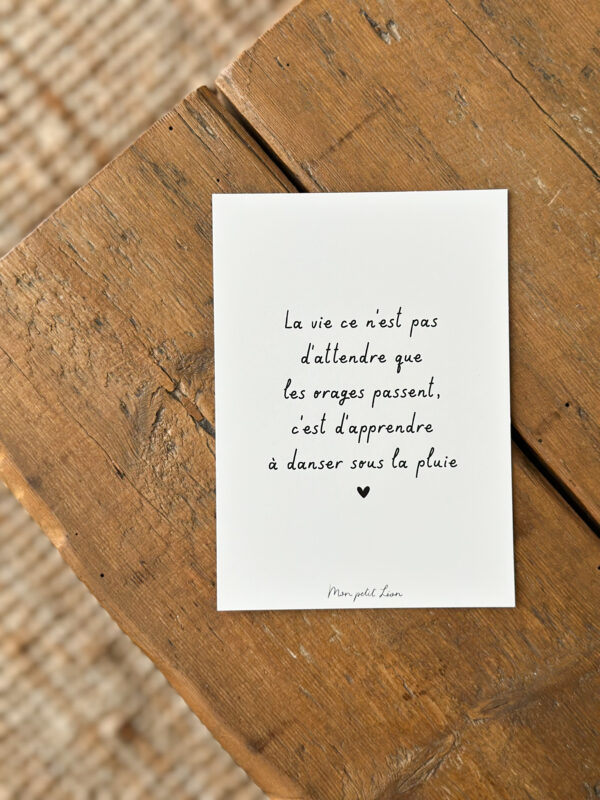 La vie ce n'est pas
d'attendre que
les orages passent,
c'est d'apprendre
à danser sous la pluie
Mon petit Léon